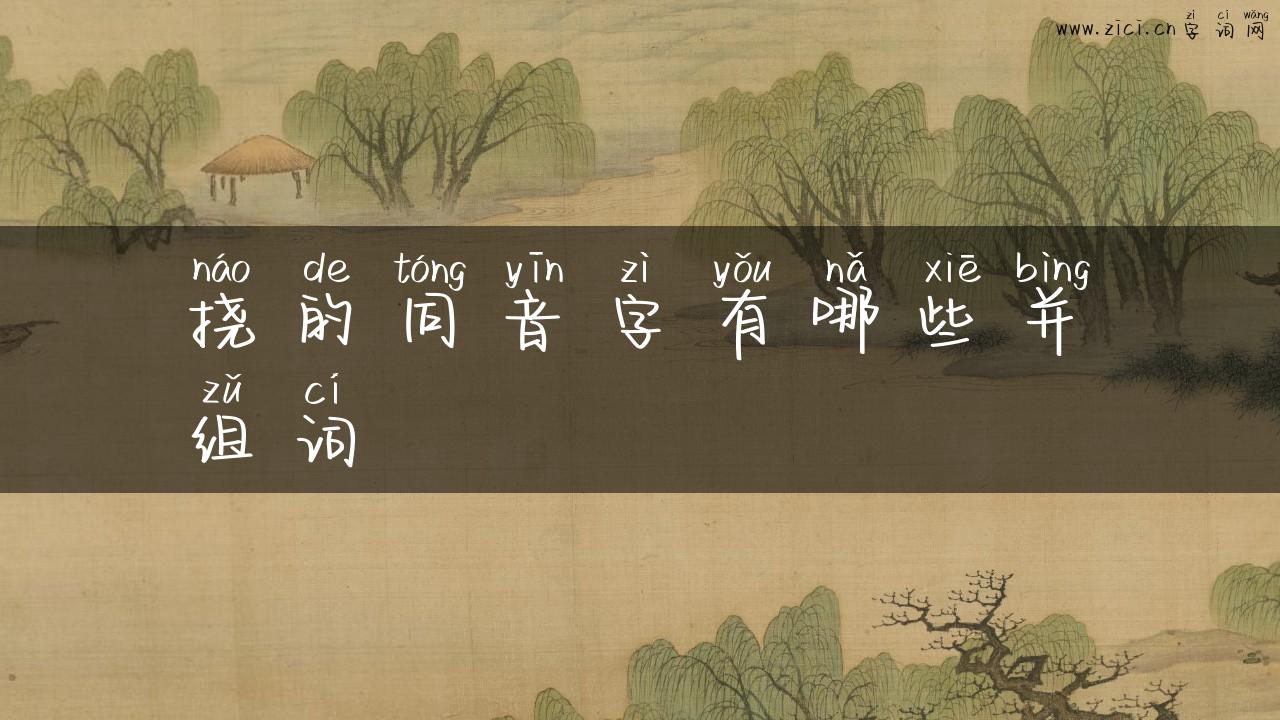 zì cí wǎng
www.zici.cn字词网
náo de tóng yīn zì yǒu nǎ xiē bìng
挠的同音字有哪些并
zǔ cí
组词